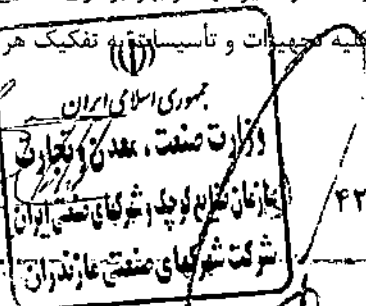 کلیه تجهیزات و تأسیسات به تفکیک هر
جمهوری اسلامی ایران
وزارت صنعت، معدن و تجارت
سازمان صنایع کوچک و شهرکهای صنعتی ایران
۴۲
شرکت شهرکهای صنعتی مازندران